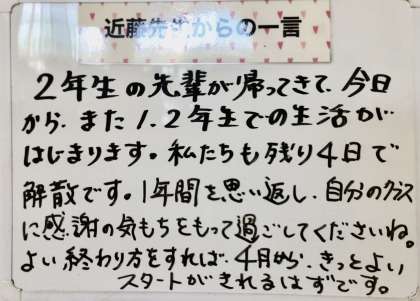 近藤先生からの一言
2年生の先輩が帰ってきて、今日
から、また1、2年生での生活が
はじまります。私たちも残り4日で
解散です。1年間を思い返し、自分のクラス
に感謝の気もちをもって過ごしてくださいね。
よい終わり方をすれば、4月から、きっとよい
スタートがきれるはずです。